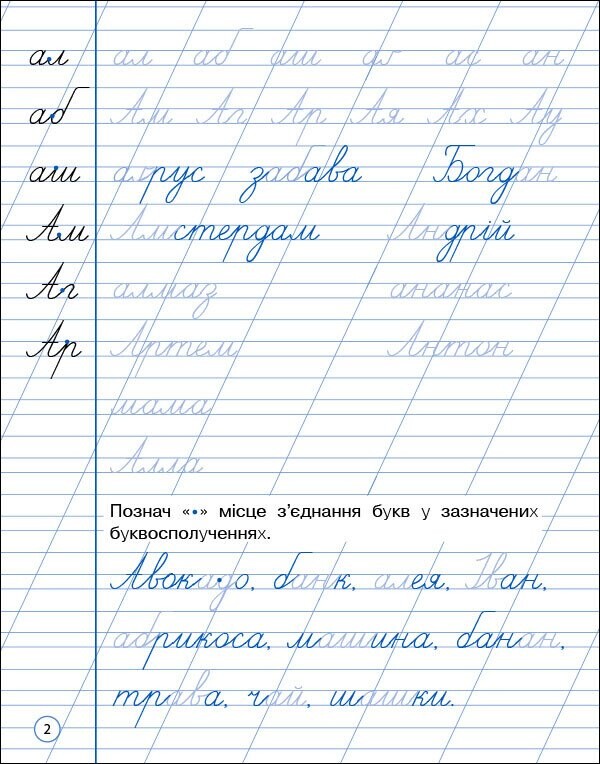 ал ал аб аш ав ас ан
аб Ам Аг Ар Ая Ах Ау
аш абрус забава Богдан
Ам Амстердам Андрій
Аг алмаз ананас
Ар Артем Антон
мама
Алла
Познач «•» місце з’єднання букв у зазначених
буквосполученнях.
Авокадо, банк, алея, Іван,
абрикоса, машина, банан,
трава, чай, шашки.
2